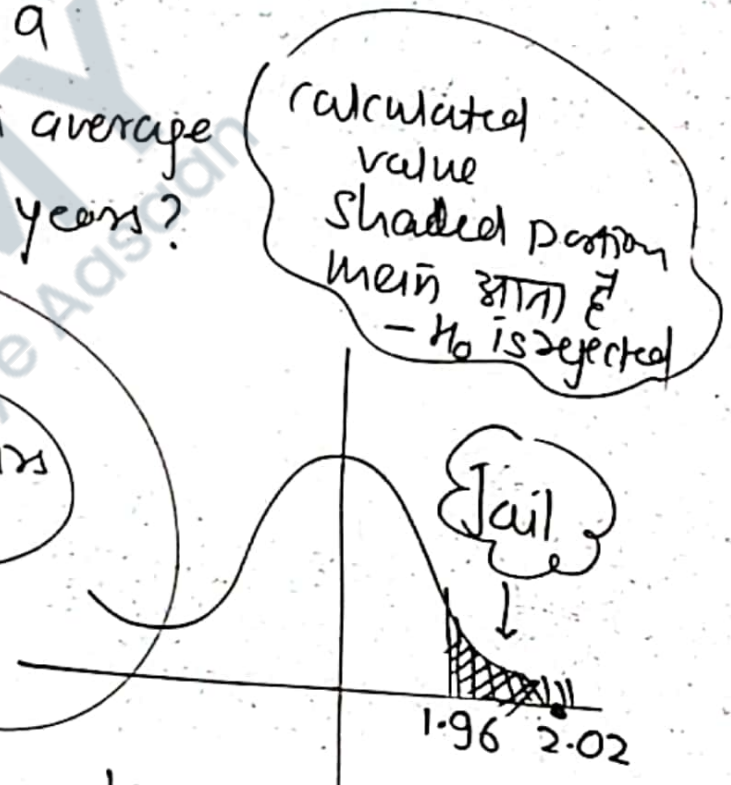 a
average
years?
Calculated
value
Shaded portion
mein आता है
- H₀ is rejected
Jail
1.96 2.02